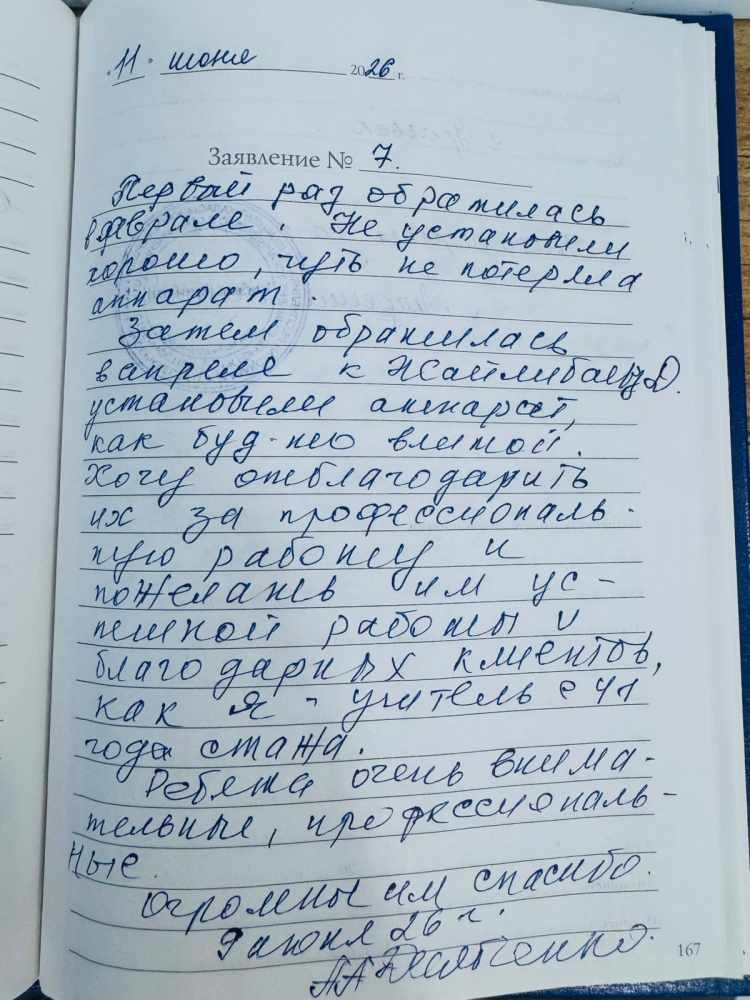 "11" июня 2026 г.
Заявление № 7.
Первый раз обратилась
в феврале. Не установили
хорошо, чуть не потеряла
аппарат.
Затем обратилась
в апреле к Жайлибаеву Д.
установили аппарат,
как буд-то влитой.
Хочу отблагодарить
их за профессиональ-
ную работу и
пожелать им ус-
пешной работы и
благодарных клиентов,
как я - учитель с 41
года стажа.
Ребята очень внима-
тельные, профессиональ-
ные.
Огромны им спасибо.
9 июня 26 г.
167